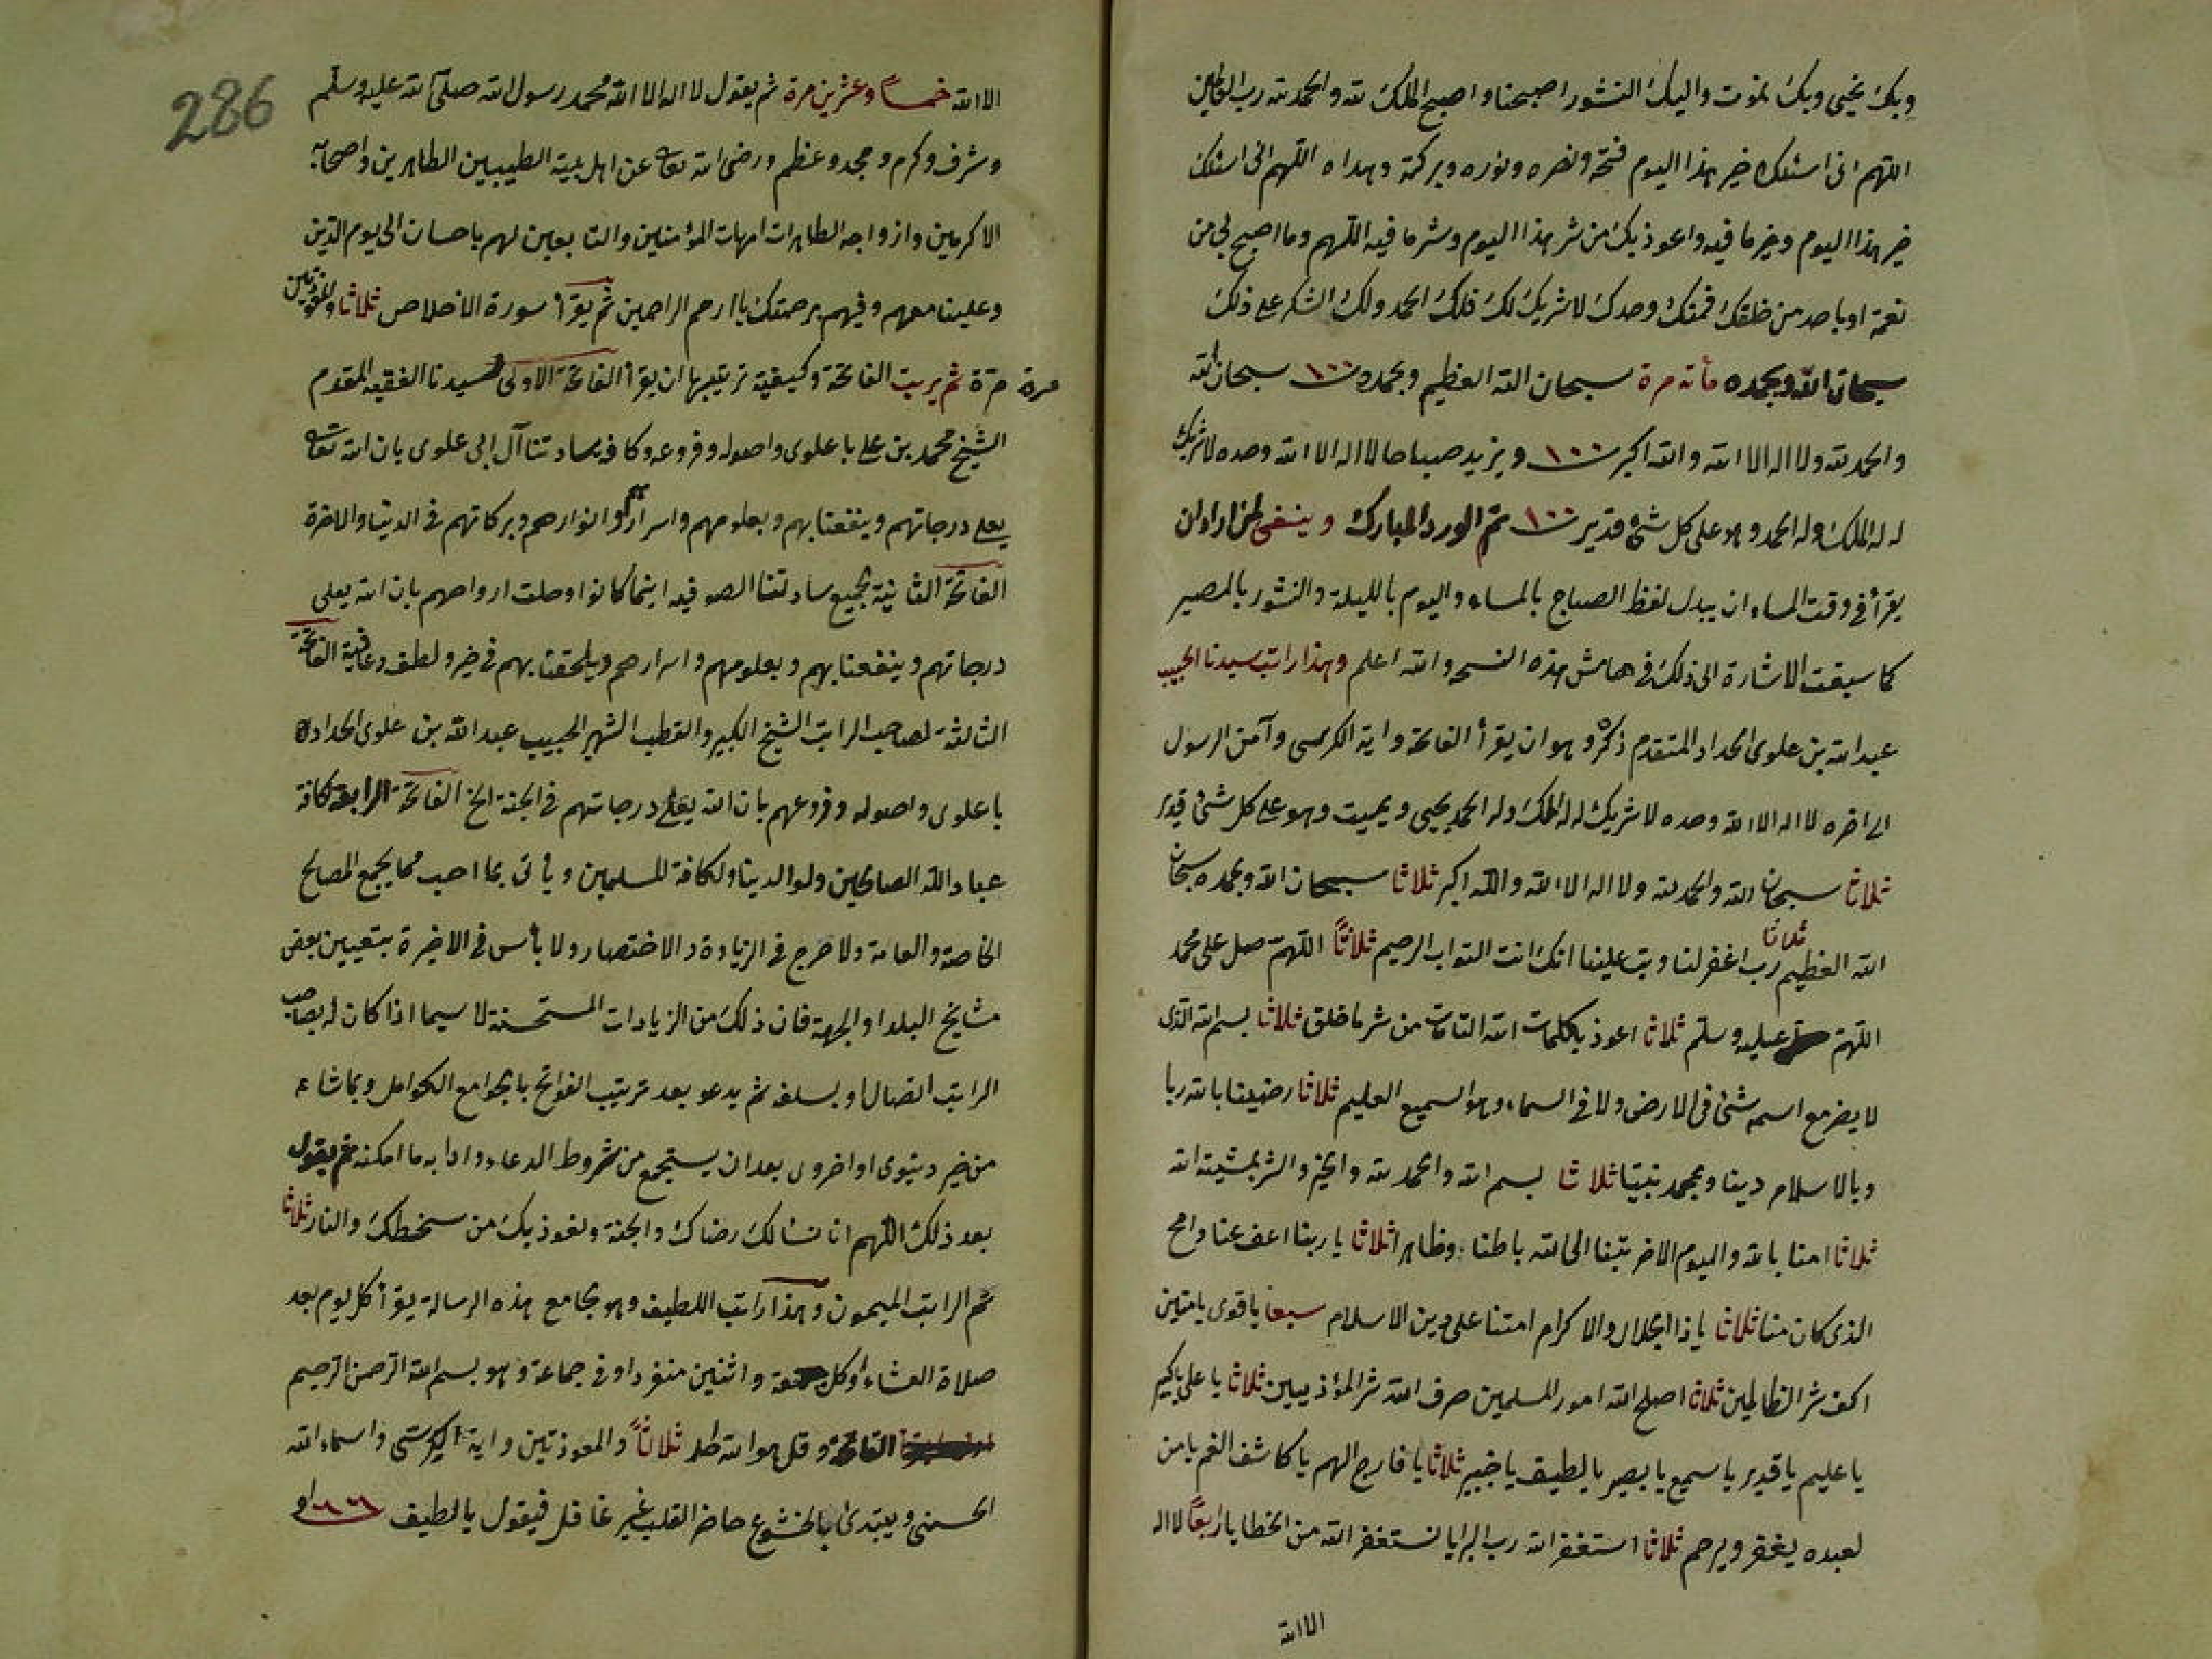 وبك نحيى وبك نموت واليك النشور اصبحنا واصبح الملك لله والحمد لله رب العالمين
اللهم انى اسئلك خير هذا اليوم فتحه ونصره ونوره وبركته وهداه اللهم انى اسئلك
خير هذا اليوم وخير ما فيه واعوذ بك من شر هذا اليوم وشر ما فيه اللهم وما اصبح بى من
نعمة او باحد من خلقك فمنك وحدك لا شريك لك فلك الحمد ولك الشكر على ذلك
سبحان الله وبحمده مأته مرة سبحان الله العظيم وبحمده ١٠٠ سبحان الله
والحمد لله ولا اله الا الله والله اكبر ١٠٠ ويزيد صباحا لا اله الا الله وحده لا شريك
له له الملك وله الحمد وهو على كل شئ قدير ١٠٠ تم الورد المبارك وينبغى لمن اراد ان
يقرأ فى وقت المساء ان يبدل لفظ الصباح بالمساء واليوم بالليلة والنشور بالمصير
كما سبقت الاشارة الى ذلك فى هامش هذه النسخه والله اعلم وهذا راتب سيدنا الحبيب
عبد الله بن علوى الحداد المتقدم ذكره وهو ان يقرأ الفاتحة واية الكرسى وآمن الرسول
الى اخره لا اله الا الله وحده لا شريك له له الملك وله الحمد يحيى ويميت وهو على كل شئ قدير
ثلاثا سبحان الله والحمد لله ولا اله الا الله والله اكبر ثلاثا سبحان الله وبحمده سبحان
الله العظيم ثلاثا رب اغفر لنا وتب علينا انك انت التواب الرحيم ثلاثاً اللهم صل على محمد
اللهم صل عليه وسلم ثلاثا اعوذ بكلمات الله التامات من شر ما خلق ثلاثا بسم الله الذى
لا يضر مع اسمه شئ فى الارض ولا فى السماء وهو السميع العليم ثلاثا رضينا بالله ربا
وبالاسلام دينا وبمحمد نبيا ثلاثا بسم الله والحمد لله والخير والشر بمشيئة الله
ثلاثا امنا بالله واليوم الاخر تبنا الى الله باطنا وظاهرا ثلاثا يا ربنا اعف عنا وامح
الذى كان منا ثلاثا يا ذا الجلال والاكرام امتنا على دين الاسلام سبعا يا قوى يا متين
اكف شر الظالمين ثلاثا اصلح الله امور المسلمين صرف الله شر المؤذيين ثلاثا يا على يا كبير
يا عليم يا قدير يا سميع يا بصير يا لطيف يا خبير ثلاثا يا فارج الهم يا كاشف الغم يا من
لعبده يغفر ويرحم ثلاثا استغفر الله رب البرايا نستغفر الله من الخطايا اربعاً لا اله
الا الله
286
الا الله خمساً وعشرين مرة ثم يقول لا اله الا الله محمد رسول الله صلى الله عليه وسلم
وشرف وكرم ومجد وعظم ورضى الله تعالى عن اهل بيته الطيبين الطاهرين واصحابه
الاكرمين وازواجه الطاهرات امهات المؤمنين والتابعين لهم باحسان الى يوم الدين
وعلينا معهم وفيهم برحمتك يا ارحم الراحمين ثم يقرأ سورة الاخلاص ثلاثا والمعوذتين
مرة مرة ثم يرتب الفاتحة وكيفية ترتيبها ان يقرأ الفاتحة الاولى لسيدنا الفقيه المقدم
الشيخ محمد بن على باعلوى واصوله وفروعه وكافه سادتنا آل ابى علوى بان الله تعالى
يعلى درجاتهم وينفعنا بهم وبعلومهم واسرارهم وانوارهم وبركاتهم فى الدنيا والاخرة
الفاتحة الثانية لجميع سادتنا الصوفيه اينما كانوا وحلت ارواحهم بان الله يعلى
درجاتهم وينفعنا بهم وبعلومهم واسرارهم ويلحقنا بهم فى خير ولطف وعافية الفاتحة
الثالثة لصاحب الراتب الشيخ الكبير والقطب الشهير الحبيب عبد الله بن علوى الحداد
باعلوى واصوله وفروعهم بان الله يعلى درجاتهم فى الجنة الخ الفاتحة الرابعة كافة
عباد الله الصالحين ولوالدينا ولكافة المسلمين وياتى بما احب مما يجمع المصالح
الخاصة والعامة ولا حرج فى الزيادة والاختصار ولا بأس فى الاخيرة بتعيين بعض
مشايخ البلد او الجهة فان ذلك من الزيادات المستحسنة لا سيما اذا كان له بصاحب
الراتب اتصال او بسلفه ثم يدعو بعد ترتيب الفواتح بالجوامع الكوامل وبما شاء
من خير دنيوى او اخروى بعد ان يستجمع من شروط الدعاء وادابه ما امكنه ثم يقول
بعد ذلك اللهم انا نسالك رضاك والجنة ونعوذ بك من سخطك والنار ثلاثا
تم الراتب الميمون وهذا راتب اللطيف وهو لجامع هذه الرسالة يقرأ كل يوم بعد
صلاة العشاء او كل جمعة واثنين منفردا وفى جماعة وهو بسم الله الرحمن الرحيم
الفاتحة وقل هو الله احد ثلاثاً والمعوذتين واية الكرسى واسماء الله
الحسنى ويبتدئ بالخشوع حاضر القلب غير غافل فيقول يا لطيف